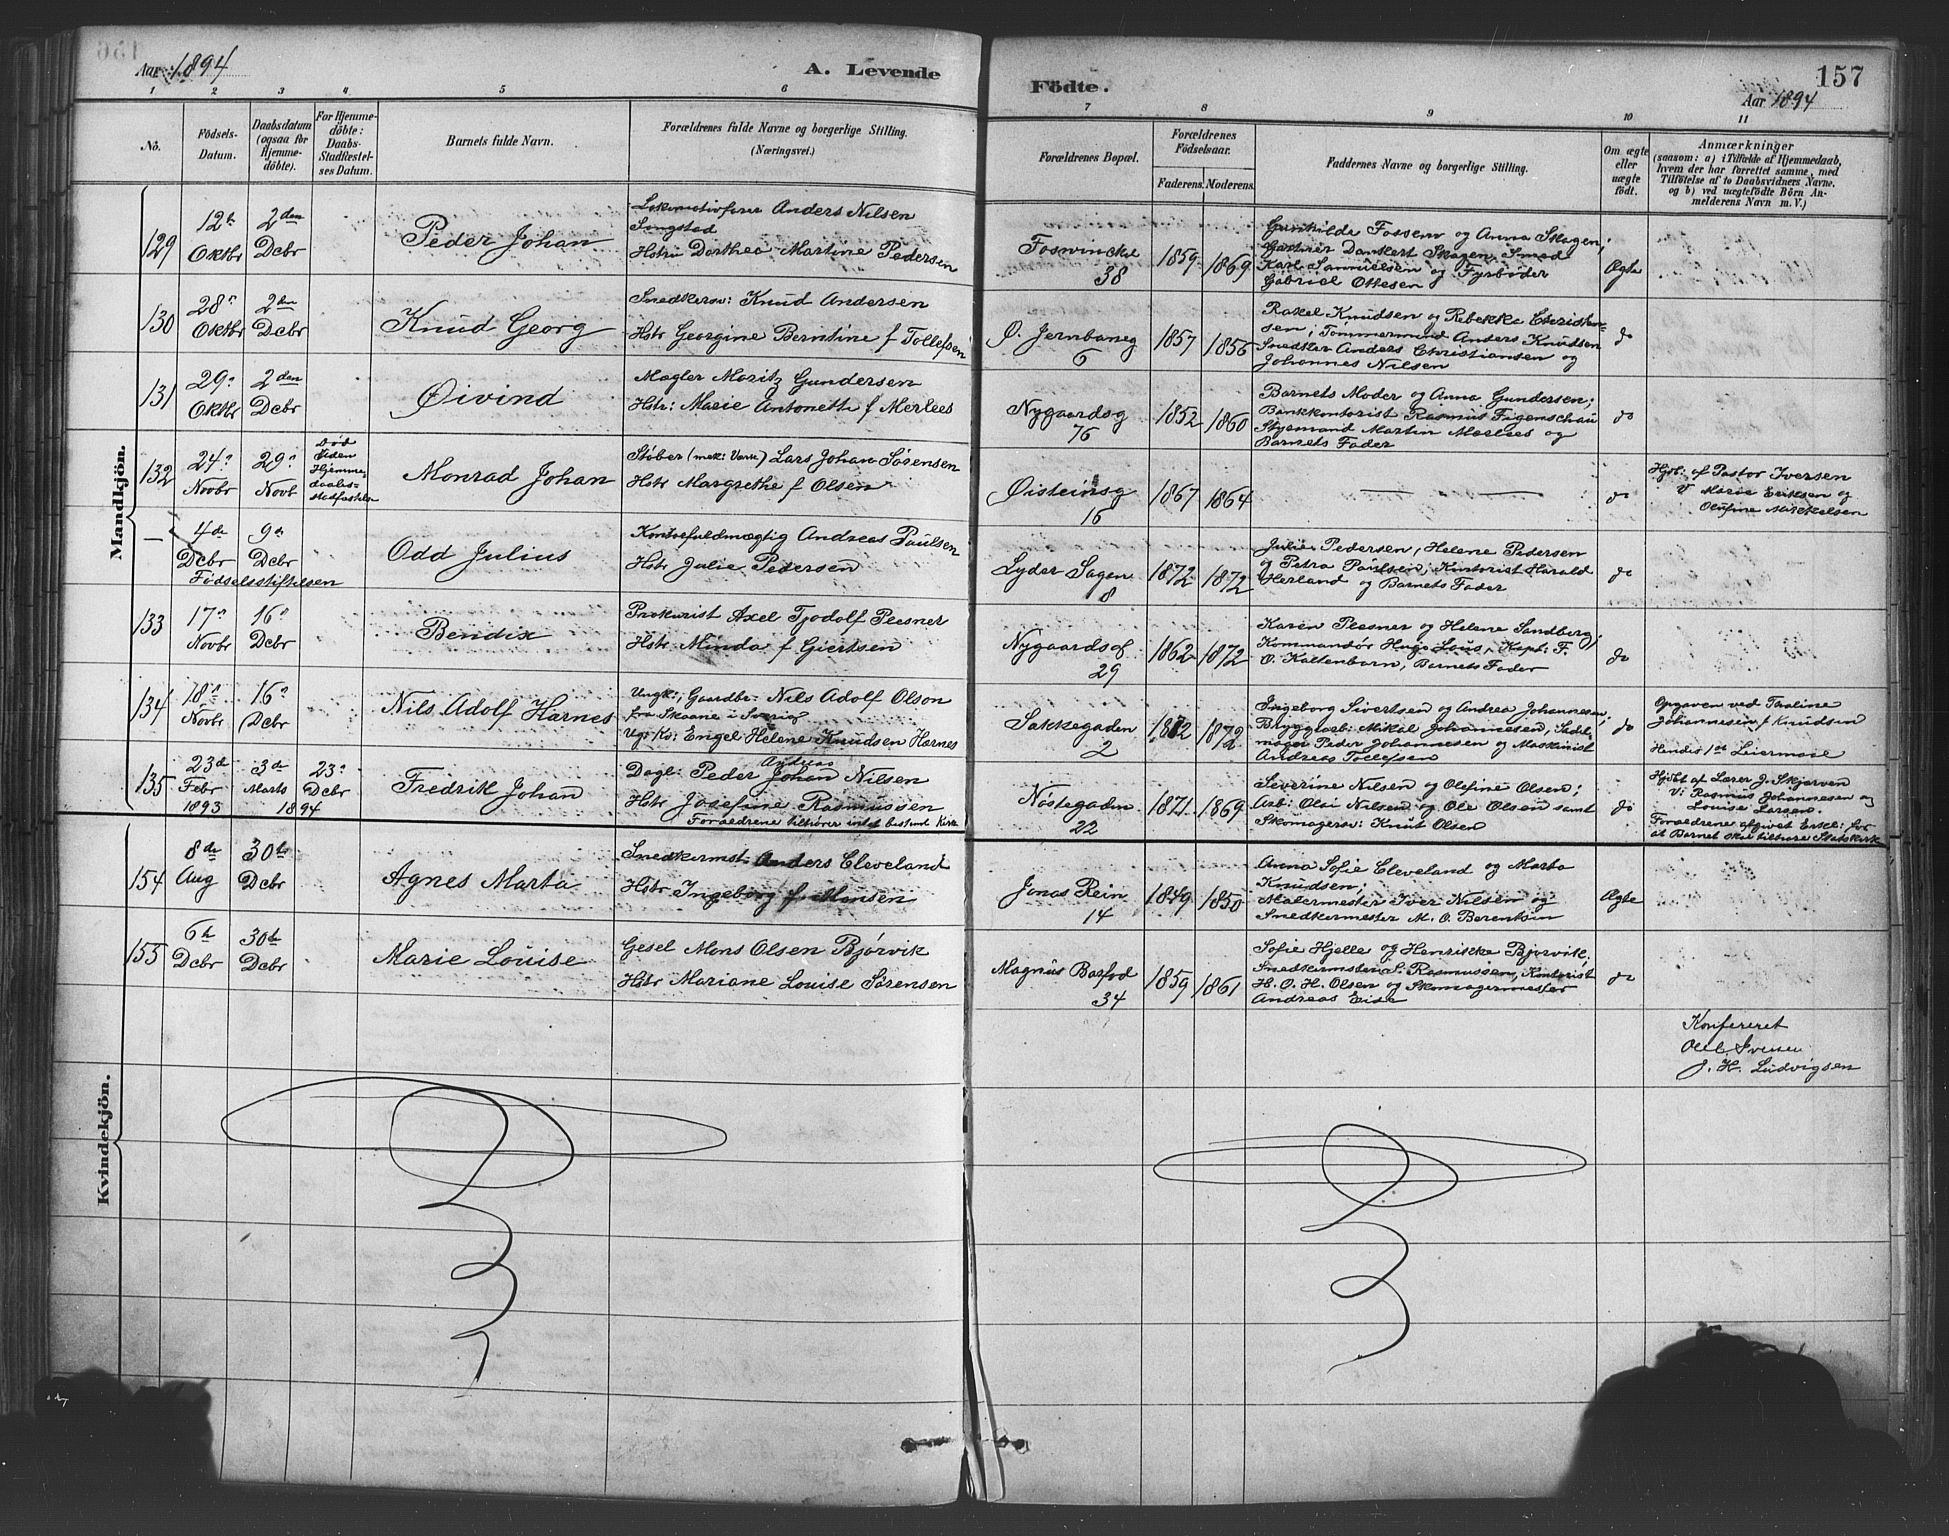 Aar 1894
A. Levende
Födte.
157
Aar 1894
1 2 3 4 5 6 7 8 9 10 11
No.
Födsels-
Datum.
Daabsdatum
(ogsaa for
Hjemme-
döbte).
For Hjemme-
döbte:
Daabs-
Stadfæstel-
ses Datum.
Barnets fulde Navn.
Forældrenes fulde Navne og borgerlige Stilling.
(Næringsvei.)
Forældrenes Bopæl.
Forældrenes
Födselsaar.
Faderens. Moderens.
Faddernes Navne og borgerlige Stilling.
Om ægte
eller
uægte
födt.
Anmærkninger
(saasom: a) i Tilfælde af Hjemmedaab,
hvem der har forrettet samme, med
Tilföielse af to Daabsvidners Navne,
og b) ved uægtefödte Börn An-
melderens Navn m. V.)
Mandkjön.
129
12te
Oktbr
2den
Dcbr
Peder Johan
Lokomotivfører Anders Nilsen
Singstad
Hstru Dorthea Martine Pedersen
Fosvinckel
38
1859
1869
Gunhilde Fossem og Anna Skagen;
Gartner Dankert Skagen, Smed
Karl Samuelsen og Fyrbøder
Gabriel Ottesen
Ægte
130
28n
Oktbr
2den
Dcbr
Knud Georg
Snedkersv: Knud Andersen
Hstr Georgine Berntine f Tollefsen
Ø. Jernbaneg
6
1857
1856
Rakel Knudsen og Rebekka Christen-
sen; Tømmermand Anders Knudsen
Snedker Anders Christiansen og
Johannes Nilsen
do
131
29n
Oktbr
2den
Dcbr
Øivind
Mægler Moritz Gundersen
Hstr: Marie Antonette f Merlees
Nygaardsg
76
1852
1860
Barnets Moder og Anna Gundersen;
Bankkontorist Rasmus Figenschau
Styrmand Martin Merlees og
Barnets Fader
do
132
24n
Novbr
29n
Novb
Død
siden
Hjemme-
daabs-
stadfæstelse
Monrad Johan
Støber (mek: Værk) Lars Johan Sørensen
Hstr Margrethe f Olsen
Øisteinsg
16
1867
1864
do
Hjdb: af Pastor Iversen
V Marie Eriksen og
Olufine Mikkelsen
—
4de
Dcbr
9de
Dcbr
Fødselsstiftelsen
Odd Julius
Kontorfuldmægtig Andreas Paulsen
Hstr Julie Pedersen
Lyder Sagen
8
1872
1872
Julie Pedersen, Helene Pedersen
og Petra Paulsen, Kontorist Harald
Herland og Barnets Fader
do
133
17n
Novbr
16n
Dcbr
Bendix
Prokurist Axel Tjodolf Plesner
Hstr Minda f Giertsen
Nygaardsg
29
1862
1872
Karen Plesner og Helene Sandberg;
Kommandør Hugo Lous, Kapt: F.
O. Kaltenborn, Barnets Fader
do
134
18n
Novbr
16n
Dcbr
Nils Adolf Harnes
Ungk:, Gaardbr: Nils Adolf Olson
fra Skaane i Sverig
Ug: Kv: Engel Helene Knudsen Harnes
Sakkegaden
2
1872
1872
Ingeborg Sivertsen og Andrea Johannesen;
Bryggearb: Mikal Johannesen, Sadel-
mager Peder Johannesen og Maskinist
Andreas Tollefsen
do
Opgaven ved Paaline
Johannesen f Knudsen
Hendes 1ste Leiermaal
135
23de
Febr
1893
3de
Marts
1894
23n
Dcbr
Fredrik Johan
Andreas
Dagl: Peder Johan Nilsen
Hstr Josefine Rasmussen
Forældrene tilhører intet bestemt Kirke
Nøstegaden
22
1871
1869
Severine Nilsen og Olefine Olsen;
Arb: Olai Nilsen og Ole Olsen samt
Skomagersv: Knut Olsen
do
Hjdbt af Lærer J. Skjerven
V: Rasmus Johannesen og
Louise Larsen.
Forældrene afgivet Erkl: for
at Barnet skal tilhøre Statskirk
Kvindekjön.
154
8de
Aug
30te
Dcbr
Agnes Marta
Snedkermst. Anders Cleveland
Hstr Ingeborg f. Monsen
Jonas Rein
14
1849
1850
Anna Sofie Cleveland og Marta
Knudsen;
Malermester Iver Nilsen og
Snedkermester M. O. Berentsen
Ægte
155
6te
Dcbr
30te
Dcbr
Marie Louise
Gesel Mons Olsen Bjørvik
Hstr Mariane Louise Sørensen
Magnus Barfod
34
1859
1861
Sofie Hjelle og Henrikke Bjørvik;
Snedkermster S. Rasmussen, Kontorist
H. O. H. Olsen og Skomagermester
Andreas Eide
do
Konfereret
Ole C Iversen
J. H. Ludvigsen